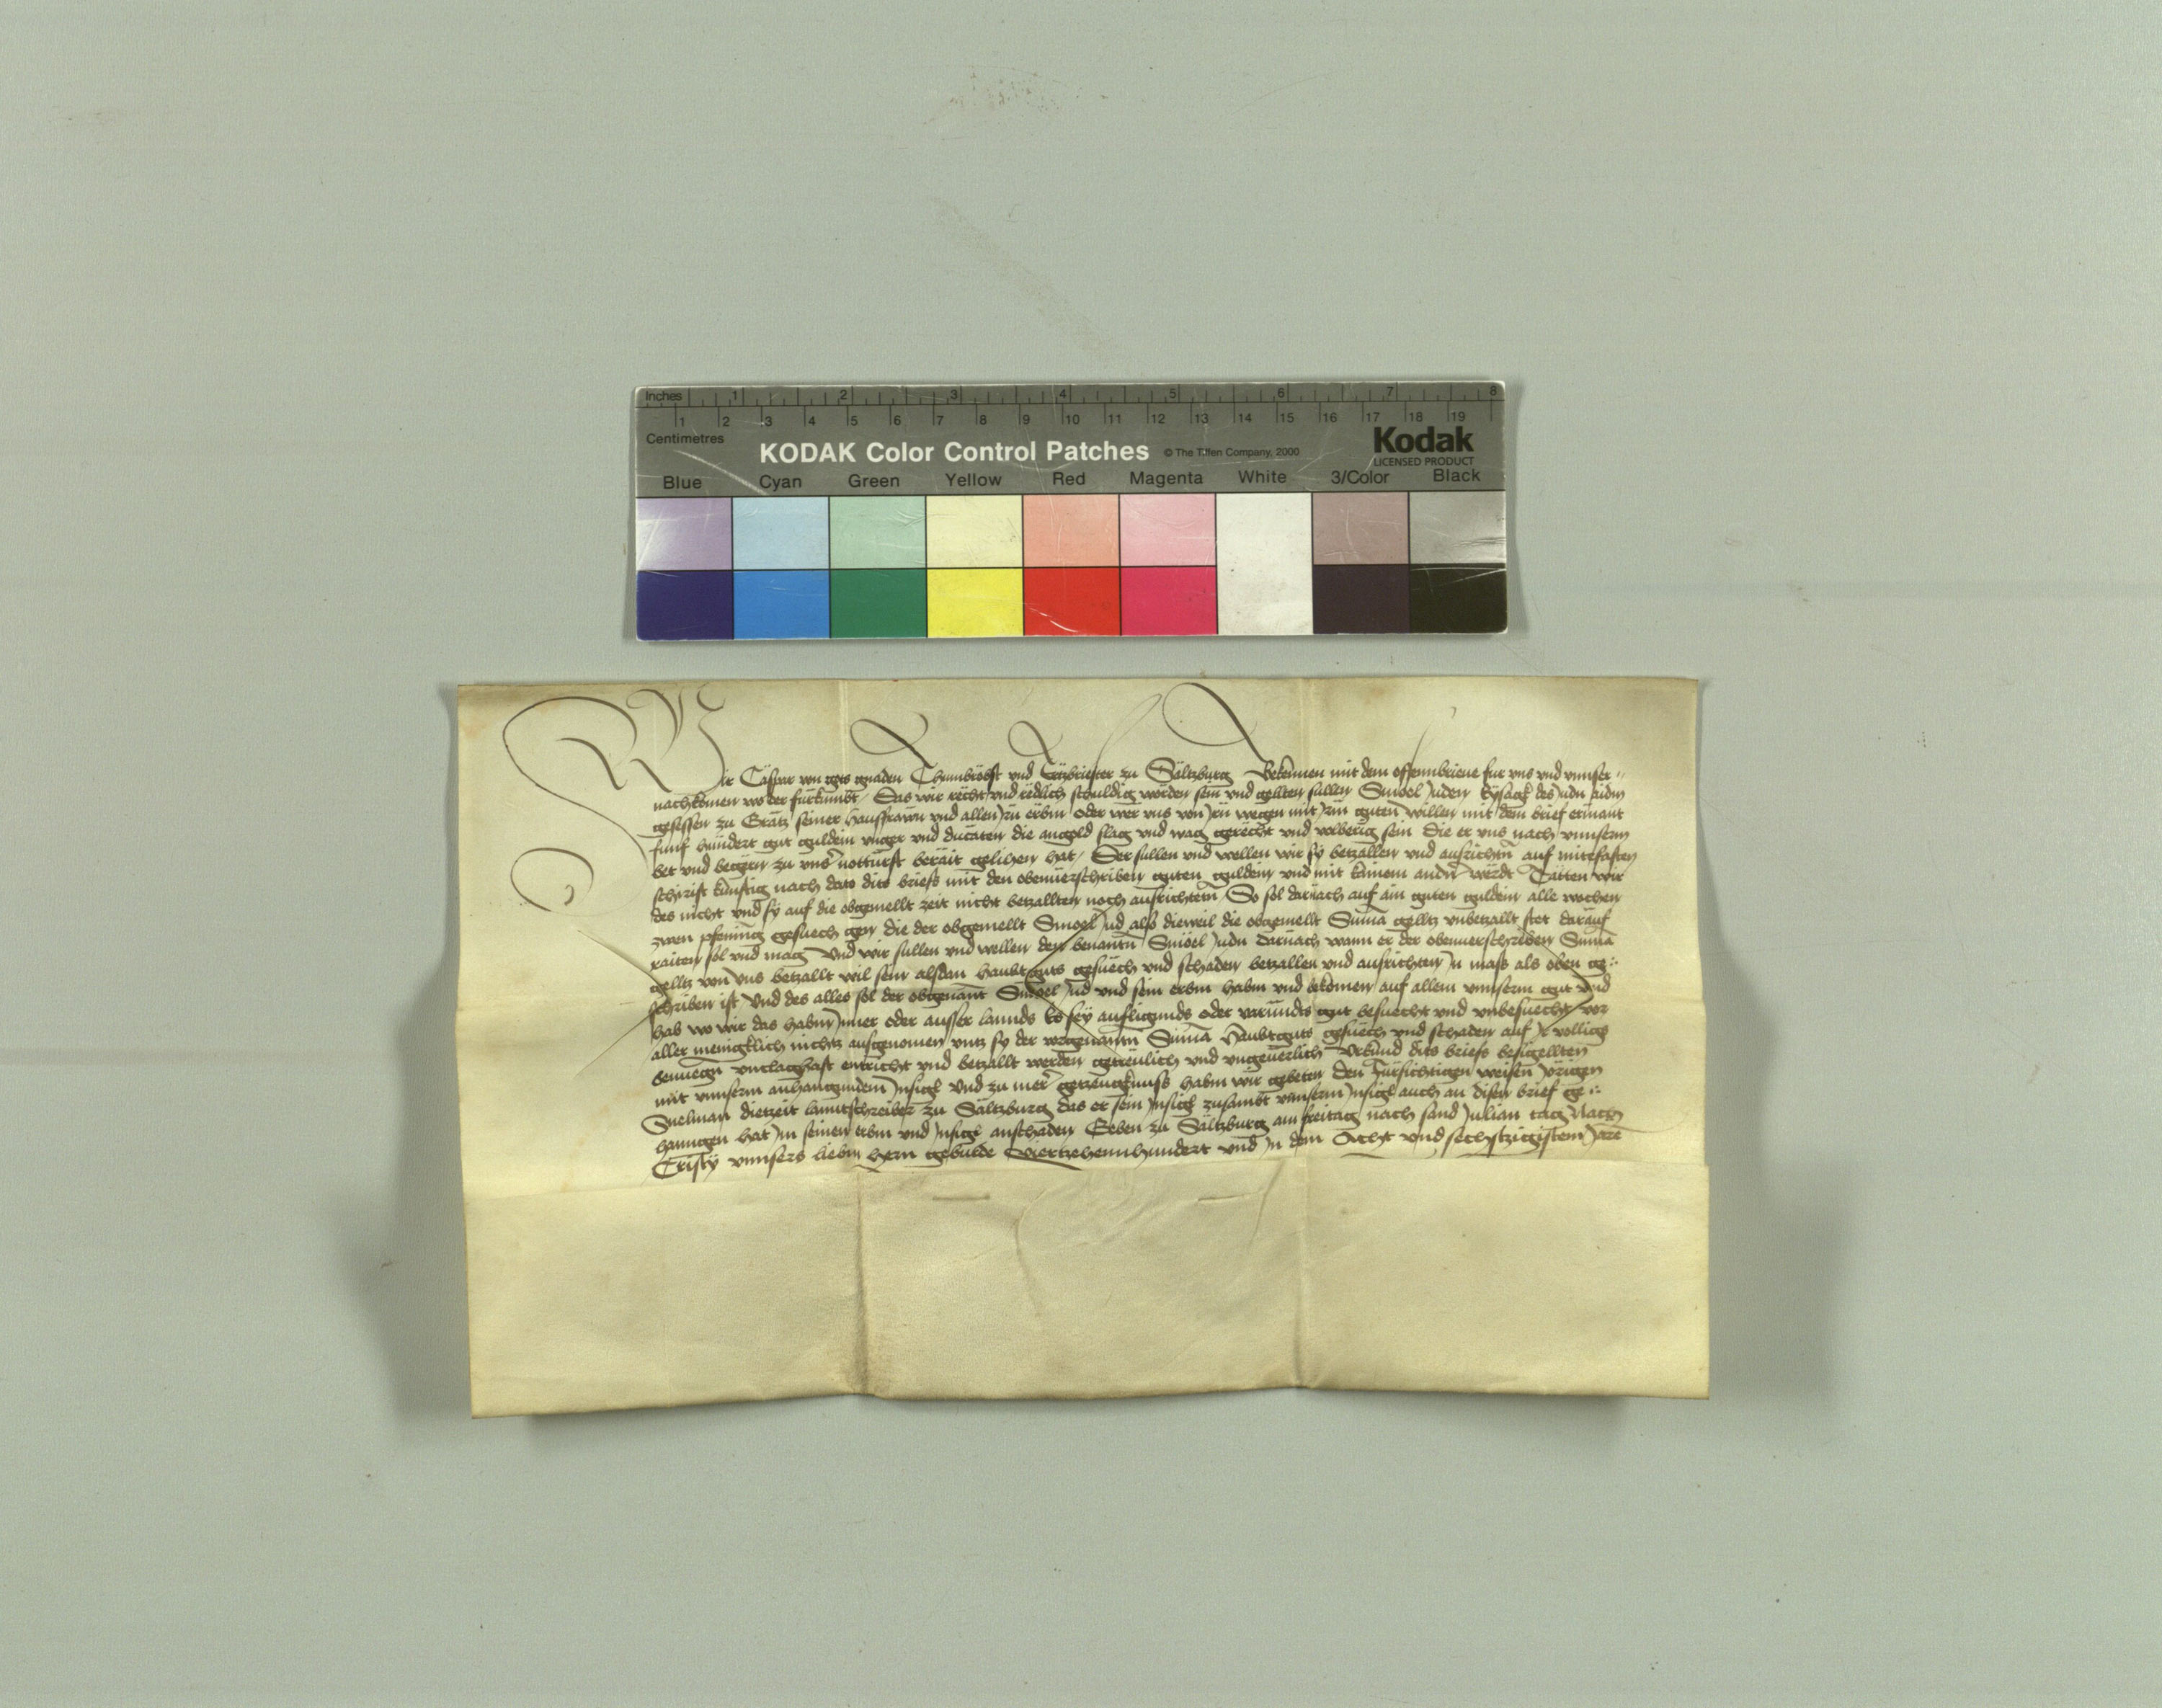 Inches 1 2 3 4 5 6 7 8
1 2 3 4 5 6 7 8 9 10 11 12 13 14 15 16 17 18 19
Centimetres
KODAK Color Control Patches © The Tiffen Company, 2000 Kodak
LICENSED PRODUCT
Blue Cyan Green Yellow Red Magenta White 3/Color Black
Wir Caspar von gots gnaden Thumbröbst vnd Ertzbriester zu Saltzburg Bekennen mit dem offennbrieue fur vns vnd vnnser
nachkomen wo der fürkumbt Das wir recht vnd redlich schuldig worden sein vnd gellten sullen Smoel Juden Eysackh des Judn aidm
gesessen zu Grätz seiner hausfrawn vnd allen Jrn erbm oder wer vns von Jrn wegen mit Jrm guten willen mit dem brief ermant
funf hundert gut guldein vnger vnd ducaten die an gold slag vnd wag gerecht vnd volberig sein Die er vns nach vnnserm
bet vnd begern zu vnser notturft berait gelihen hat Der sullen vnd wellen wir sy betzallen vnd ausrichtn auf mitefasten
schirist kunftig nach dato dits briefs mit den obenuerschriben guten guldein vnd mit kainem andern werdt Tätten wir
des nicht vnd sy auf die obgemellt zeit nicht betzallten noch ausrichteten So sol darnach auf ain guten guldein alle wochen
zwen pfening gesuech gen die der obgemellt Smoel Jud also dieweil die obgemellt Suma gelltz vnbetzallt stet darauf
raiten sol vnd mag Vnd wir sullen vnd wellen dem benantn Smoel Judn darnach wann er der obenuerschriben Suma
gelltz von vns betzallt wil sein alsdan haubtguts gesuech vnd schaden betzallen vnd ausrichten Jn mass als oben ge
schriben ist Vnd des alles sol der obgenant Smoel Jud vnd sein erbm habm vnd bekomen auf allem vnnserm gut vnd
hab wo wir das habm Jnner oder ausser lannds Es sey aufligunds oder varundts gut besuecht vnd vnbesuecht vor
aller menigklich nichtz ausgenomen vntz sy der vorgenantn Suma haubtguts gesuech vnd schaden auf Jr volligs
benuegen vnclaghaft entricht vnd betzallt werden getreulich vnd vngeuerlich Vrkund dits briefs besigellten
mit vnnserm anhangundem Jnsigl Vnd zu merer getzeugknuss habm wir gebeten den fürsichtigen weisen Jörigen
Snelman dietzeit lanntschreiber zu Saltzburg das er sein Jnsigl zusambt vnnserm Jnsigl auch an disen brief ge
hanngen hat Jm seinen erbm vnd Jnsigl anschaden Geben zu Saltzburg am freitag nach sand Julian tag Nach
Cristy vnnsers liebm hern geburde Viertzehennhundert vnd Jn dem Acht vnd sechstzigistem Jare